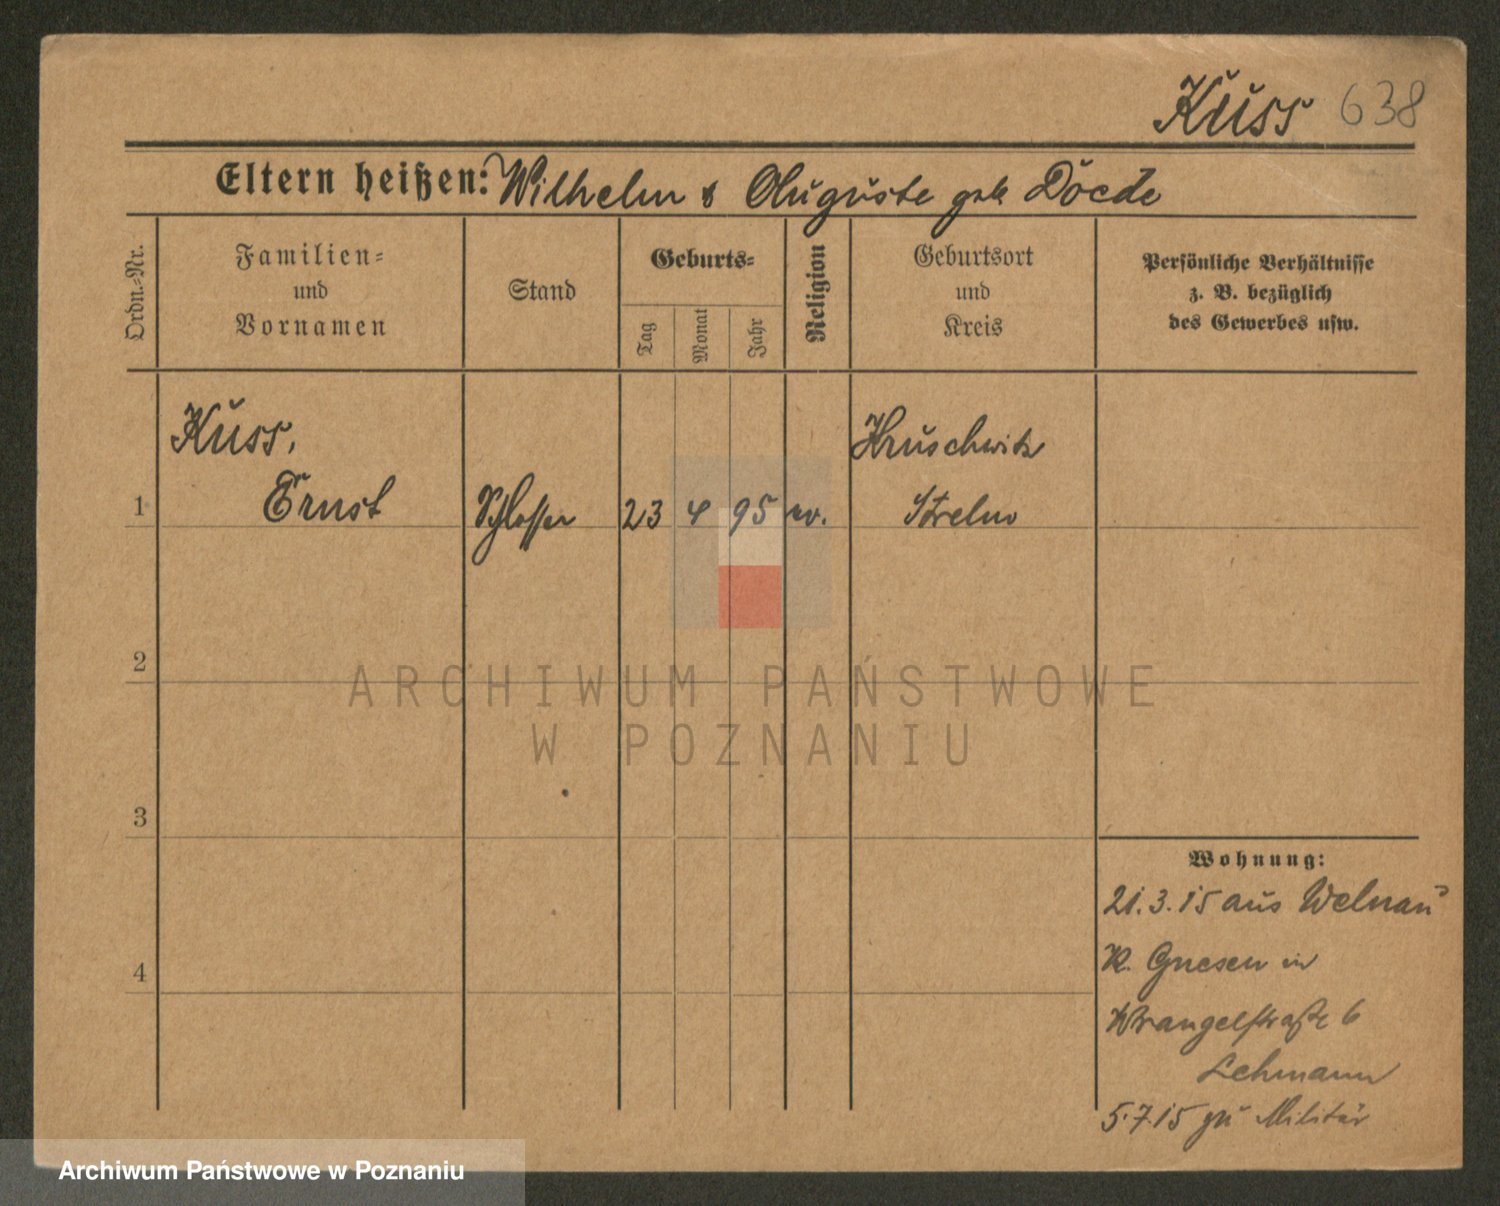 Kuss 638
Eltern heißen: Wilhelm & Auguste geb.
Ordn.-Nr.
Familien-
und
Vornamen
Stand
Geburts-
Tag
Monat
Jahr
Religion
Geburtsort
und
Kreis
Persönliche Verhältnisse
z. B. bezüglich
des Gewerbes usw.
Kuss,
Kruschwitz
1 Ernst Schlosser 23 4 95 ev. Strelno
2
ARCHIWUM PAŃSTWOWE
W POZNANIU
3
Wohnung:
21.3.15 aus Welnau
K. Gnesen in
Wrangelstraße 6
Lehmann
5.7.15 zu Militär
4
Archiwum Państwowe w Poznaniu